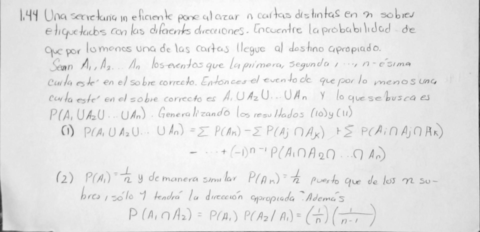 1.44 Una secretaria ineficiente pone al azar n cartas distintas en n sobres
etiquetados con las diferentes direcciones. Encuentre la probabilidad de
que por lo menos una de las cartas llegue al destino apropiado.
Sean A₁, A₂... An los eventos que la primera, segunda, ..., n-ésima
carta esté en el sobre correcto. Entonces el evento de que por lo menos una
carta este en el sobre correcto es A₁ U A₂ U... U An y lo que se busca es
P(A₁ U A₂ U... U An). Generalizando los resultados (10) y (11)
(1) P(A₁ U A₂ U... U An) = Σ P(An) - Σ P(Aj ∩ Ak) + Σ P(Ai ∩ Aj ∩ Ak)
- ... + (-1)ⁿ⁻¹ P(A₁ ∩ A₂ ∩ ... ∩ An)
(2) P(A₁) = 1/n y de manera similar P(An) = 1/n puesto que de los n so-
bres, sólo 1 tendrá la dirección apropiada. Además
P(A₁ ∩ A₂) = P(A₁) P(A₂/A₁) = (1/n) (1/n-1)